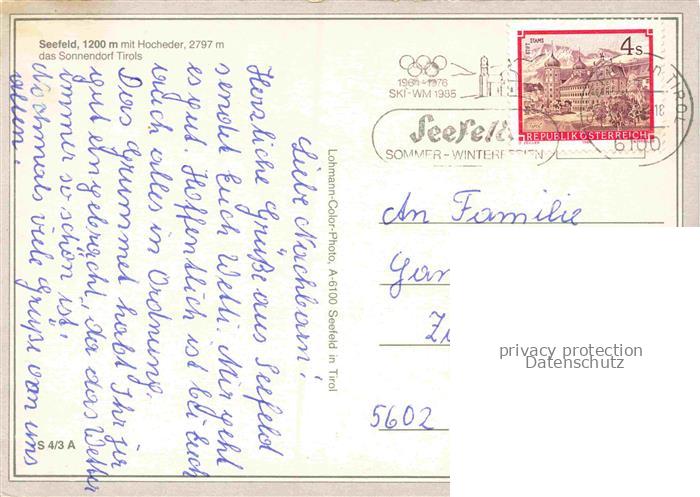 Seefeld, 1200 m mit Hocheder, 2797 m
das Sonnendorf Tirols
Liebe Nachbarn!
Herzliche Grüße aus Seefeld
sendet Euch Wetti. Mir geht
es gut Hoffentlich ist bei Euch
auch alles in Ordnung.
Das Grummet habt Ihr ja
gut eingebracht, da das Wetter
immer so schön ist.
Nochmals viele Grüße von uns
allen.
S 4/3 A
Lohmann-Color-Photo, A-6100 Seefeld in Tirol
1964-1976
SKI-WM 1985
Seefeld
SOMMER-WINTERFERIEN
STIFT STAMS
4s
REPUBLIK ÖSTERREICH
in TIROL
18
6100
An Familie
5602
privacy protection
Datenschutz